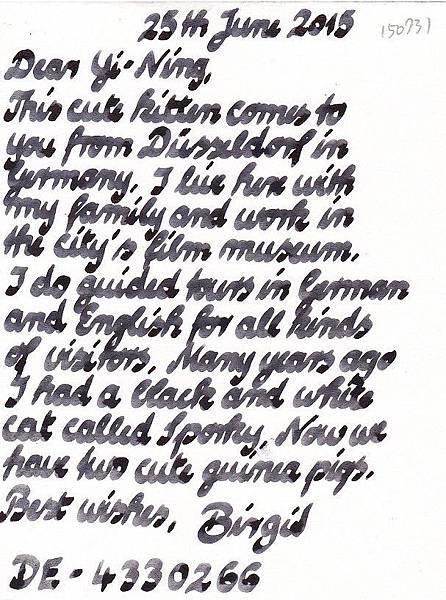 25th June 2015
150731
Dear Yi-Ning,
This cute kitten comes to
you from Düsseldorf in
Germany. I live here with
my family and work in
the city's film museum.
I do guided tours in German
and English for all kinds
of visitors. Many years ago
I had a black and white
cat called Sporky. Now we
have two cute guinea pigs.
Best wishes, Birgit
DE-4330266